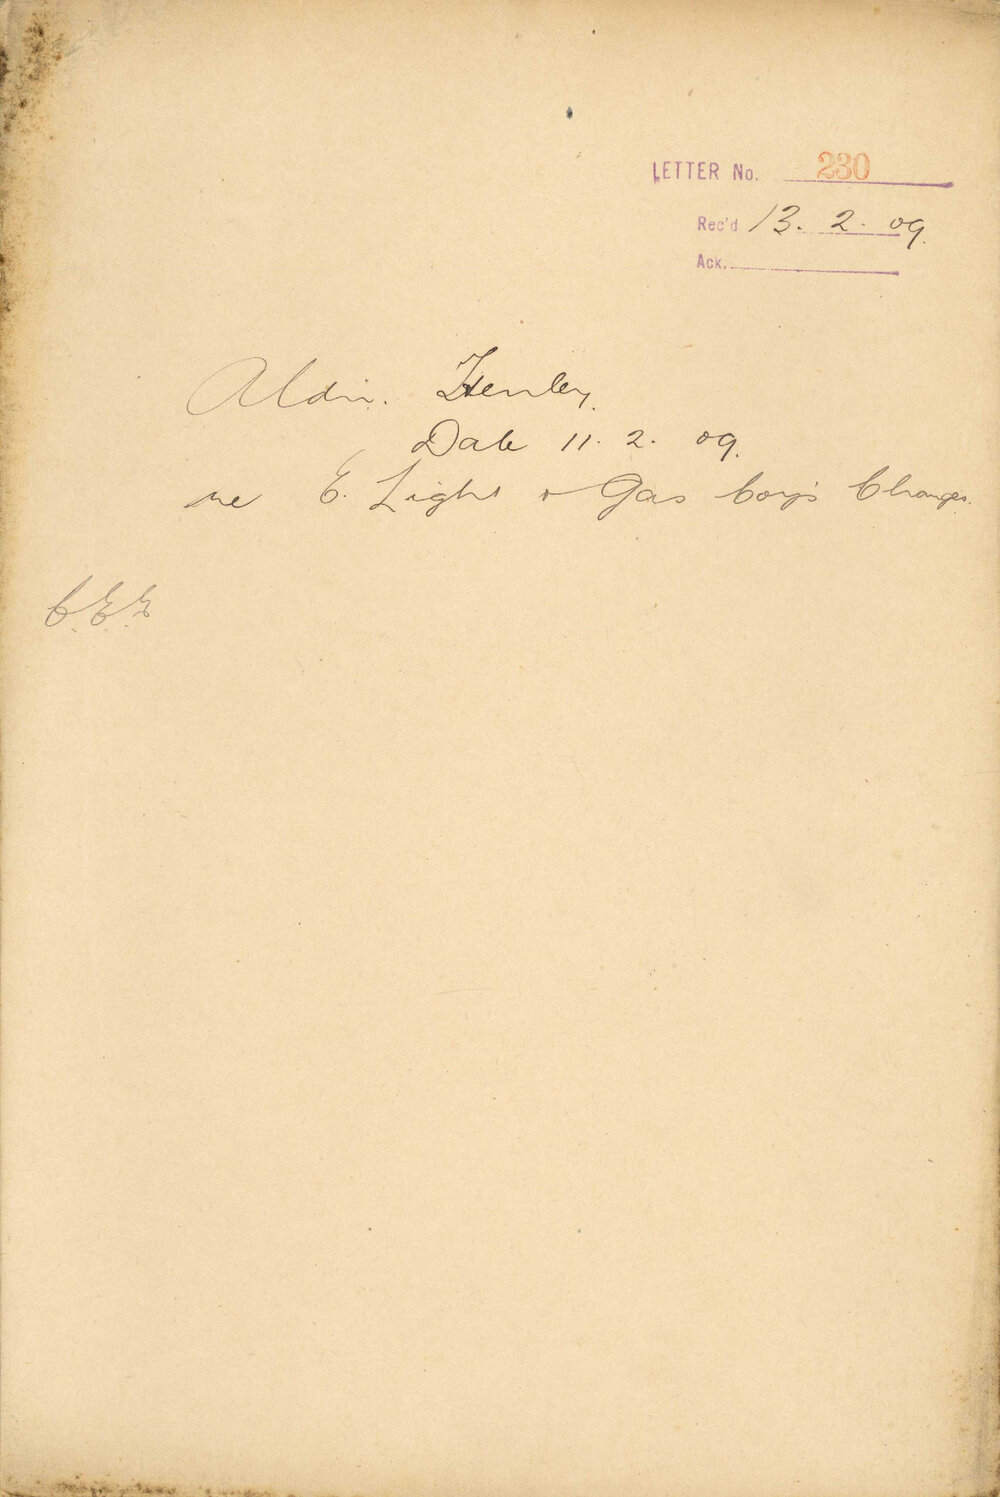 LETTER No. 230
Rec'd 13. 2. 09.
Ack.
Aldn. Henley.
Date 11. 2. 09.
re E. Light & Gas Coy's Charges.
C.E.E